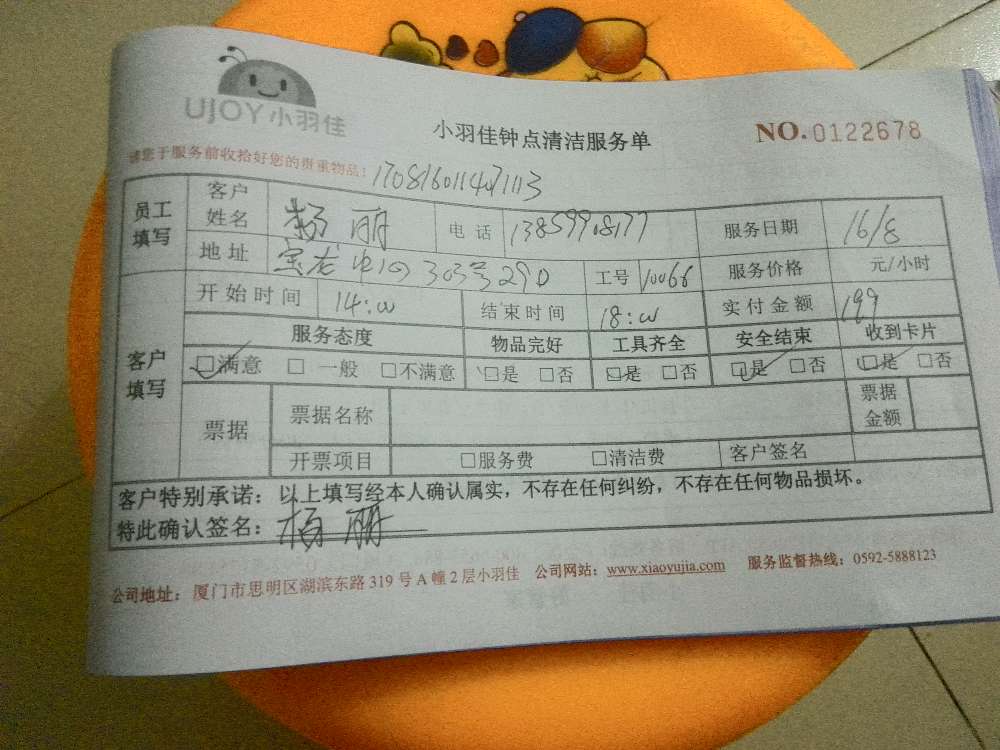 UJOY小羽佳
小羽佳钟点清洁服务单
NO.0122678
请您于服务前收拾好您的贵重物品:
员工填写 客户姓名 杨丽 电话 服务日期 16/8
地址 303号29D 工号 10066 服务价格 元/小时
开始时间 14:00 结束时间 18:00 实付金额 199
客户填写 服务态度 物品完好 工具齐全 安全结束 收到卡片
□满意 □一般 □不满意 □是 □否 □是 □否 □是 □否 □是 □否
票据 票据名称 票据金额
开票项目 □服务费 □清洁费 客户签名
客户特别承诺：以上填写经本人确认属实，不存在任何纠纷，不存在任何物品损坏。
特此确认签名：杨丽
公司地址：厦门市思明区湖滨东路319号A幢2层小羽佳 公司网站：www.xiaoyujia.com 服务监督热线：0592-5888123